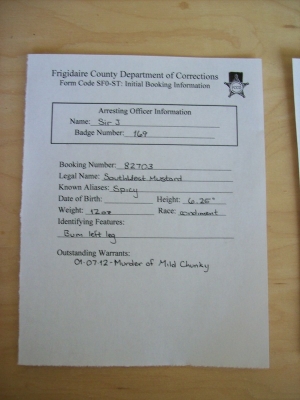 Frigidaire County Department of Corrections
Form Code SF0-ST: Initial Booking Information
Arresting Officer Information
Name: Sir J
Badge Number: 169
Booking Number: 82703
Legal Name: SouthWest Mustard
Known Aliases: Spicy
Date of Birth: Height: 6.25"
Weight: 12oz Race: condiment
Identifying Features:
Bum left leg
Outstanding Warrants:
01-07-12-Murder of Mild Chunky